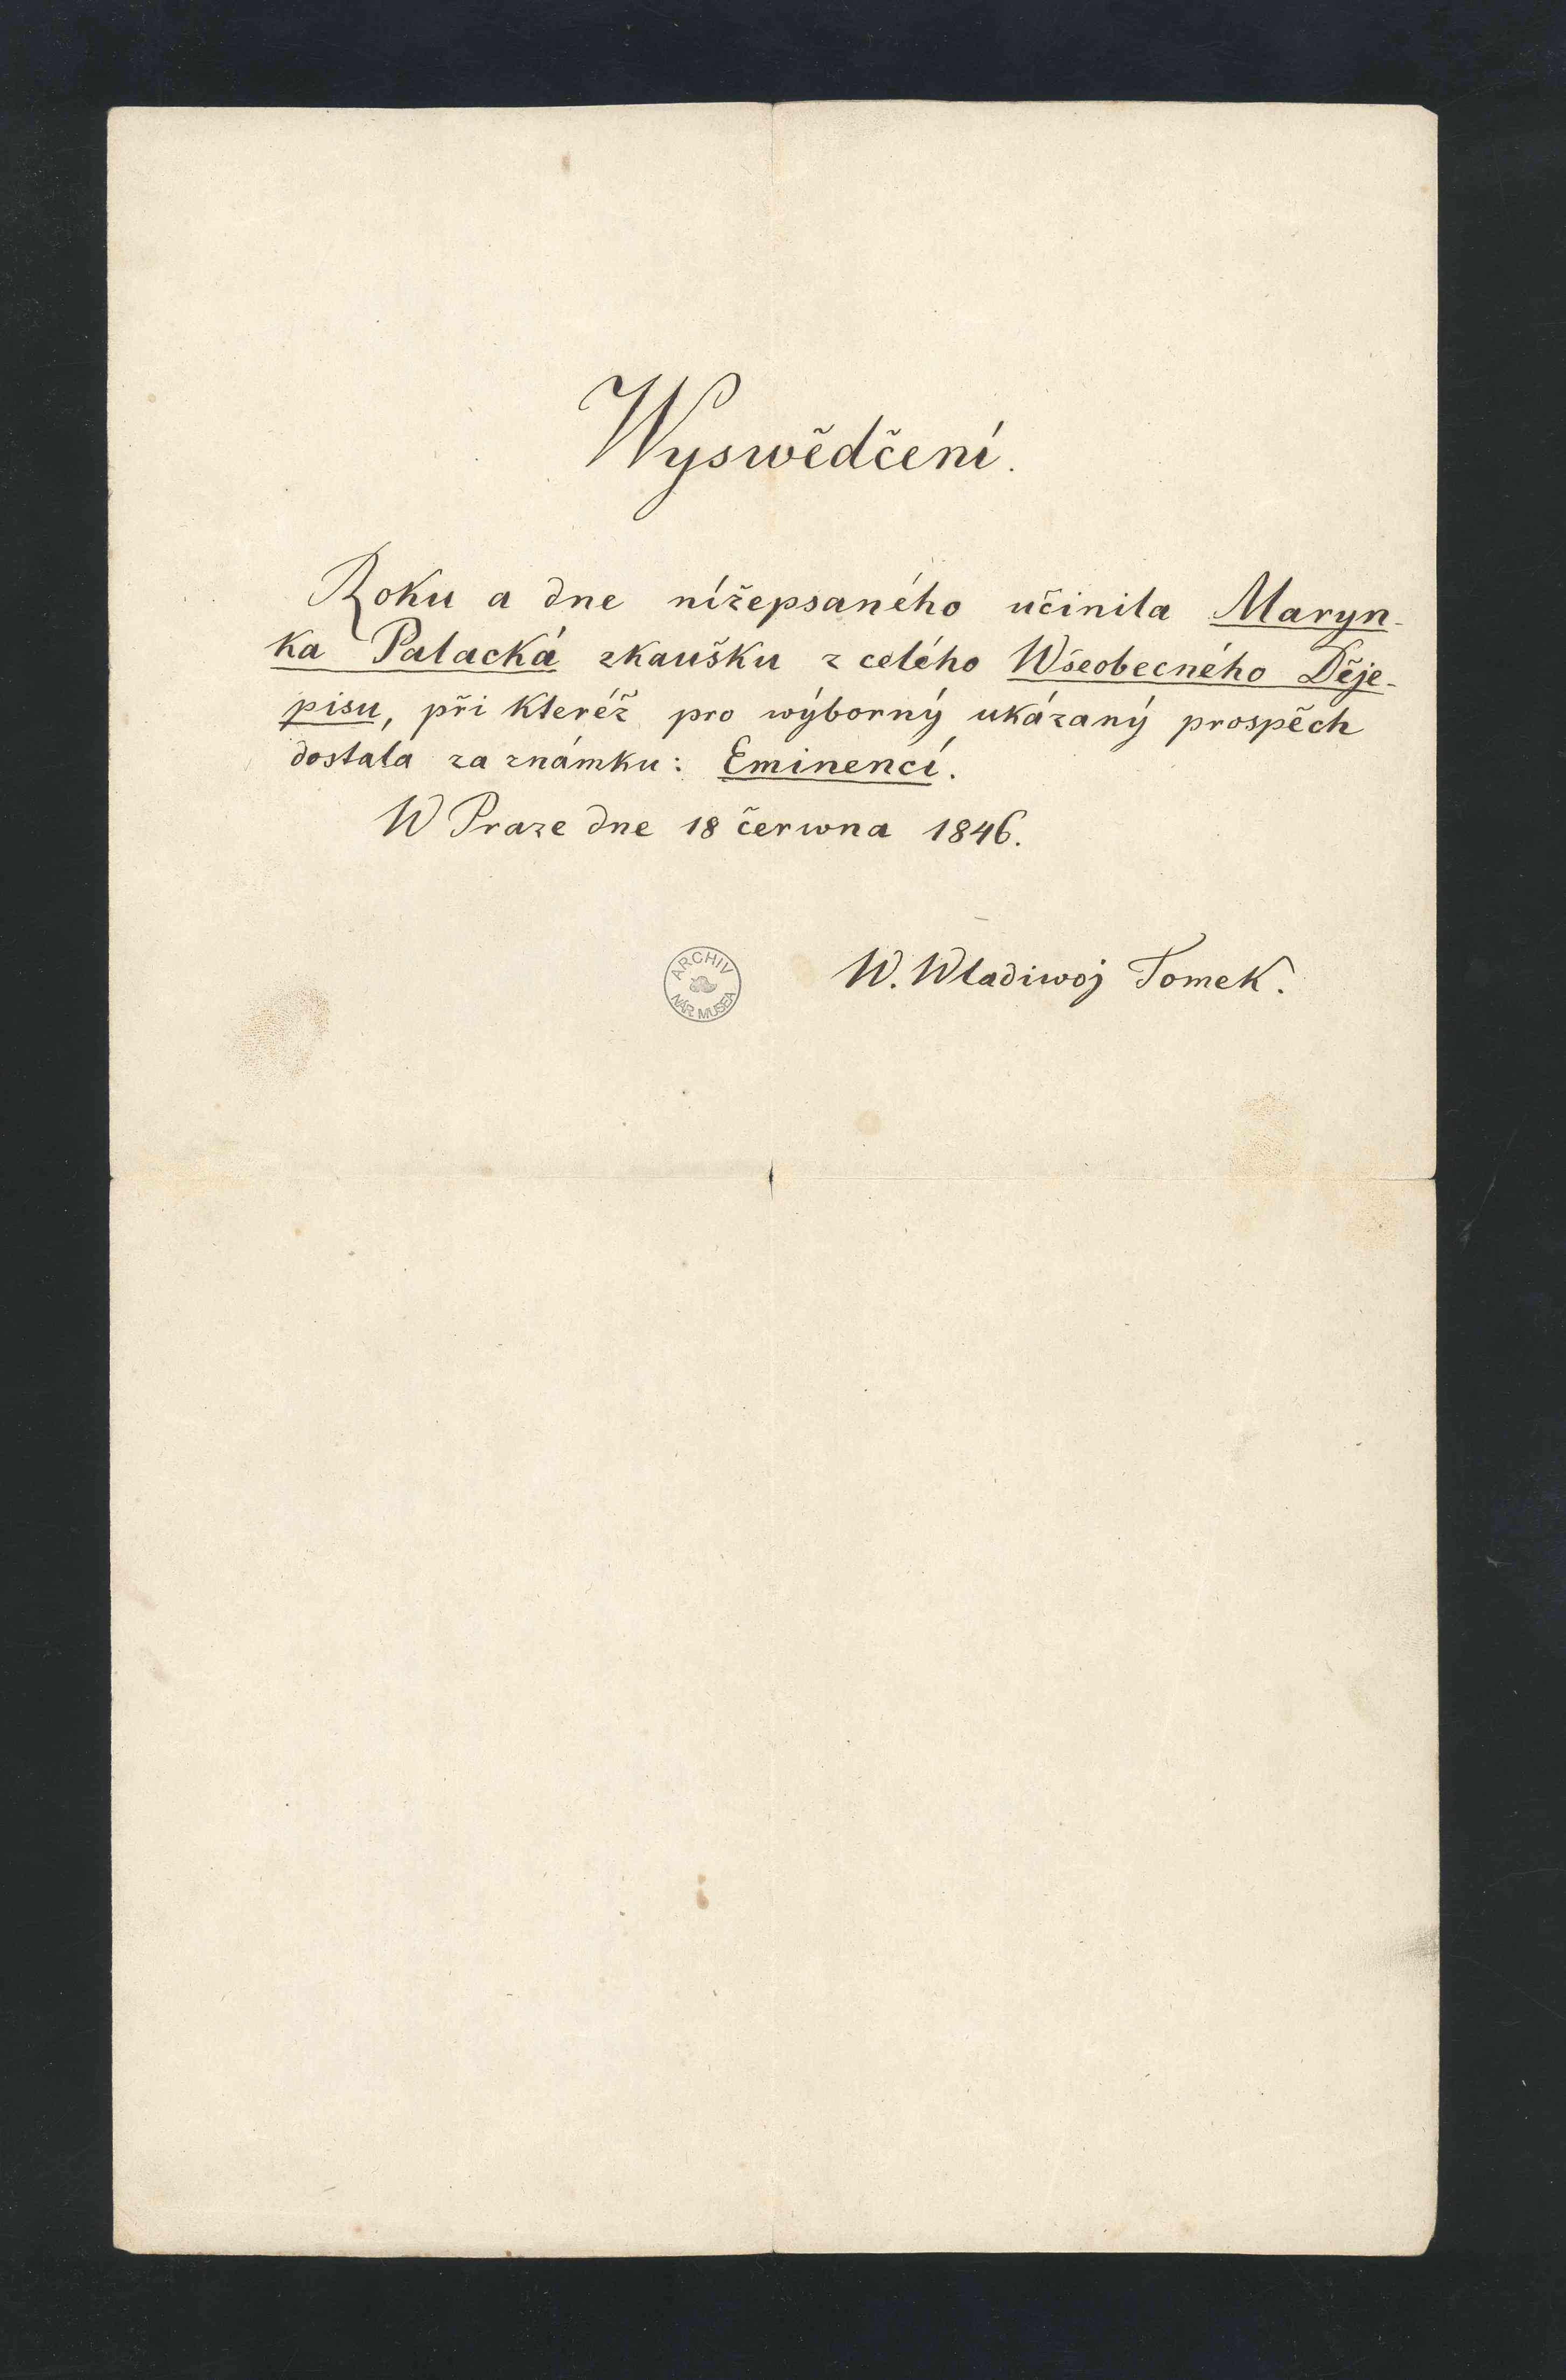 Wyswědčení.
Roku a dne nížepsaného učinila Maryn-
ka Palacká zkaušku z celého Wšeobecného Děje-
pisu, při kteréž pro wýborný ukázaný prospěch
dostala za známku: Eminencí.
W Praze dne 18 čerwna 1846.
W. Wladiwoj Tomek.
ARCHIV
NÁR. MUSEA